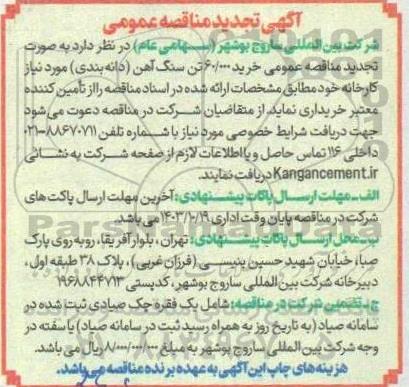 آگهی تجدید مناقصه عمومی
شرکت بین المللی ساروج بوشهر (سهامی عام) در نظر دارد به صورت
تجدید مناقصه عمومی خرید ۶۰/۰۰۰ تن سنگ آهن (دانه بندی) مورد نیاز
کارخانه خود مطابق مشخصات ارائه شده در اسناد مناقصه را از تأمین کننده
معتبر خریداری نماید. از متقاضیان شرکت در مناقصه دعوت می شود
جهت دریافت شرایط خصوصی مورد نیاز با شماره تلفن ۸۸۶۷۰۷۱۱-۰۲۱
داخلی ۱۱۶ تماس حاصل و یا اطلاعات لازم از صفحه شرکت به نشانی
Kangancement.ir دریافت نمایند.
الف-مهلت ارسال پاکات پیشنهادی: آخرین مهلت ارسال پاکت های
شرکت در مناقصه پایان وقت اداری ۱۴۰۳/۱۰/۱۹ می باشد.
ب-محل ارسال پاکات پیشنهادی: تهران، بلوار آفریقا، روبه روی پارک
صبا، خیابان شهید حسین بنیسی (فرزان غربی)، پلاک ۳۸ طبقه اول،
دبیرخانه شرکت بین المللی ساروج بوشهر، کدپستی ۱۹۶۸۸۴۴۷۱۳
ج-تضمین شرکت در مناقصه: شامل یک فقره چک صیادی ثبت شده در
سامانه صیاد (به تاریخ روز به همراه رسید ثبت در سامانه صیاد) یا سفته در
وجه شرکت بین المللی ساروج بوشهر به مبلغ ۸/۰۰۰/۰۰۰/۰۰۰ ریال می باشد.
هزینه های چاپ این آگهی به عهده برنده مناقصه می باشد.